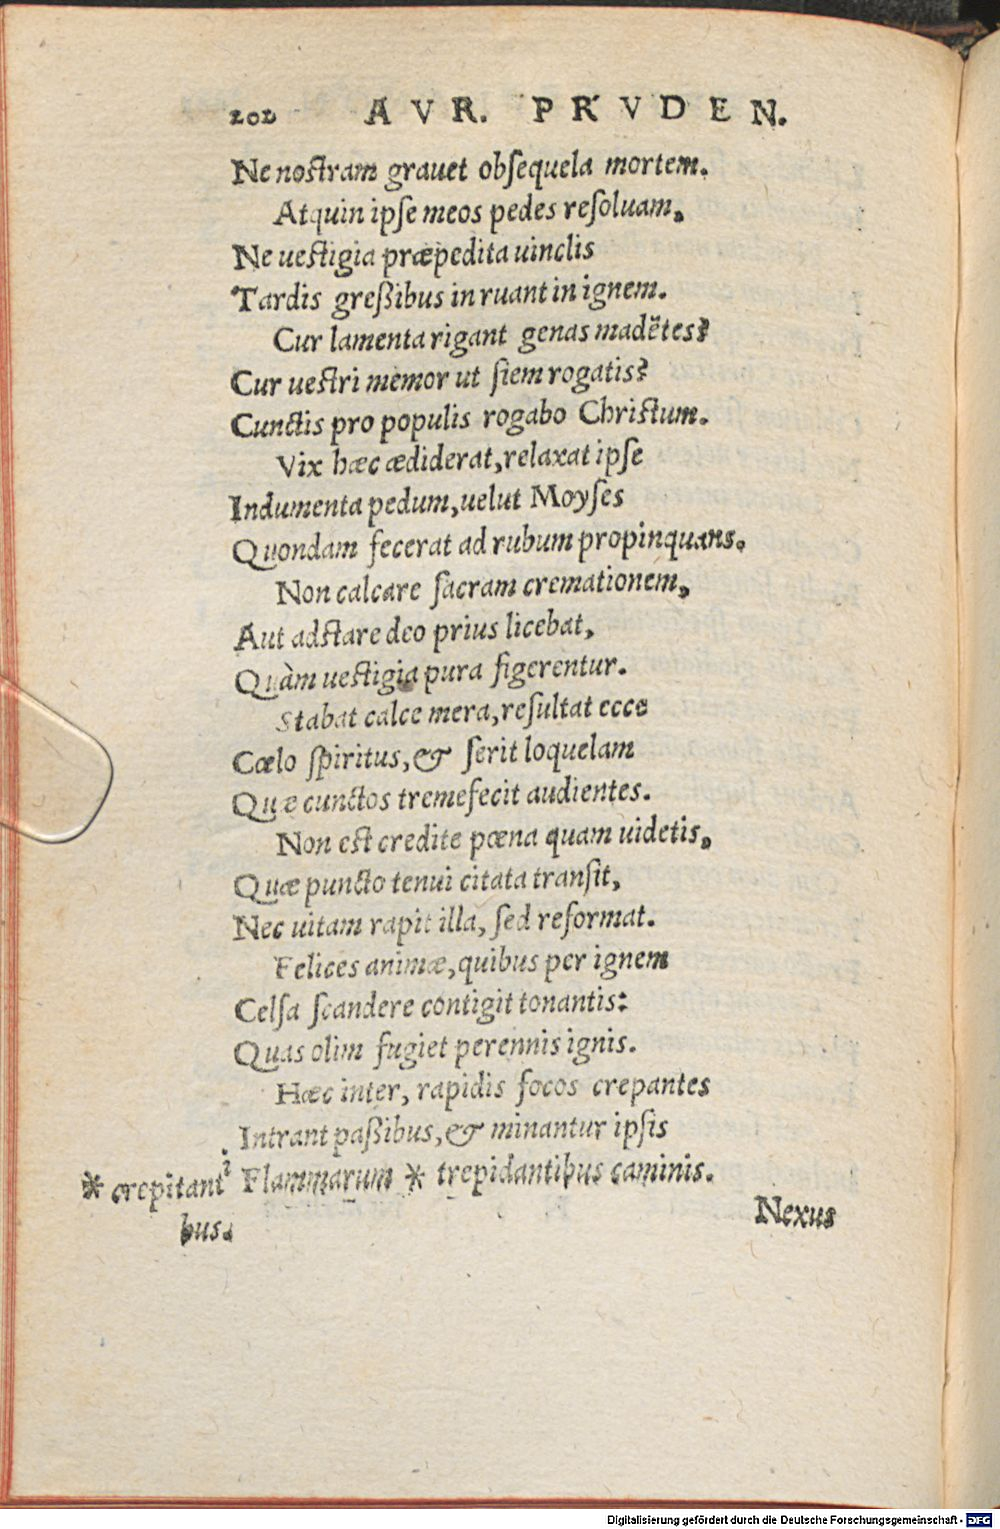 202 AVR. PRVDEN.
Ne nostram grauet obsequela mortem.
Atquin ipse meos pedes resoluam,
Ne uestigia præpedita uinclis
Tardis greßibus inruant in ignem.
Cur lamenta rigant genas madētes?
Cur uestri memor ut siem rogatis?
Cunctis pro populis rogabo Christum.
Vix hæc ædiderat, relaxat ipse
Indumenta pedum, uelut Moyses
Quondam fecerat ad rubum propinquans.
Non calcare sacram cremationem,
Aut adstare deo prius licebat,
Quàm uestigia pura figerentur.
Stabat calce mera, resultat ecce
Cœlo spiritus, & serit loquelam
Quæ cunctos tremefecit audientes.
Non est credite pœna quam uidetis,
Quæ puncto tenui citata transit,
Nec uitam rapit illa, sed reformat.
Felices animæ, quibus per ignem
Celsa scandere contigit tonantis:
Quas olim fugiet perennis ignis.
Hæc inter, rapidis focos crepantes
Intrant paßibus, & minantur ipsis
Flammarum * trepidantibus caminis.
* crepitanti
bus.
Nexus
Digitalisierung gefördert durch die Deutsche Forschungsgemeinschaft - DFG